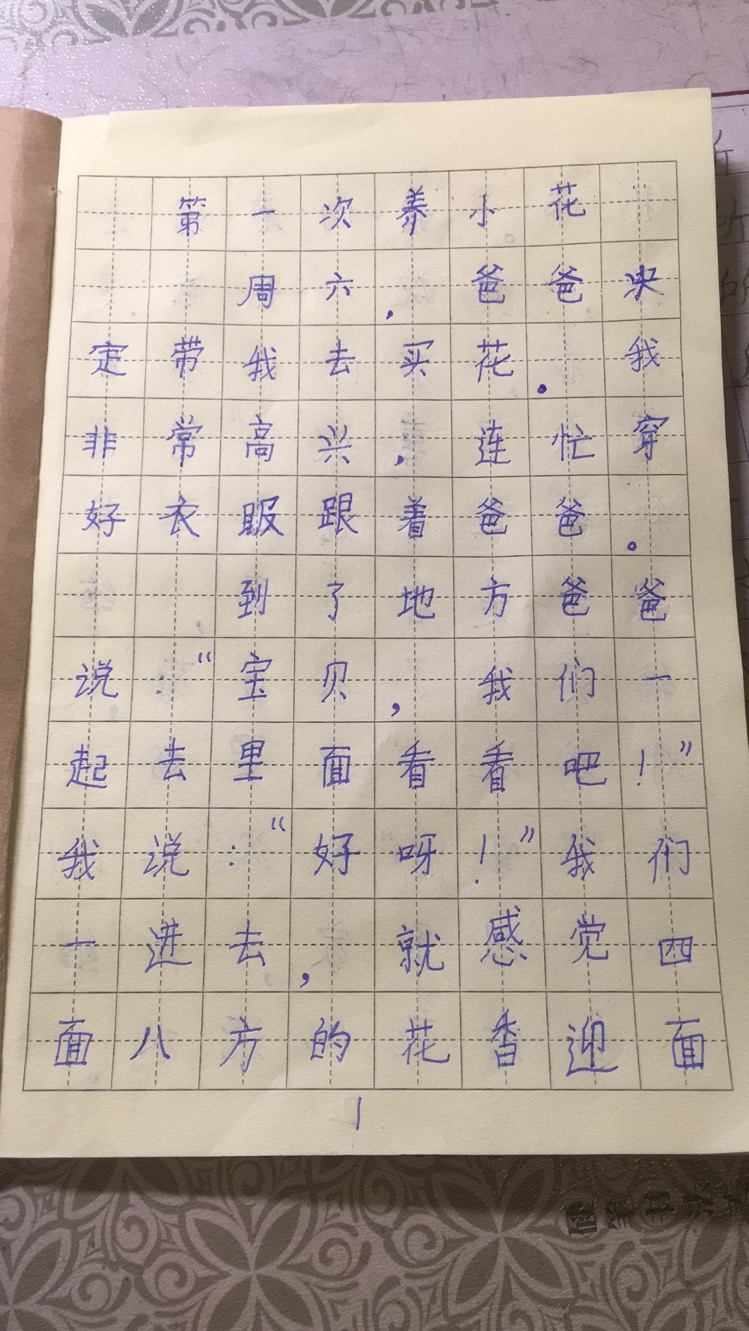 第一次养小花
周六，爸爸决
定带我去买花。我
非常高兴，连忙穿
好衣服跟着爸爸。
到了地方爸爸
说：“宝贝，我们一
起去里面看看吧！”
我说：“好呀！”我们
一进去，就感觉四
面八方的花香迎面
1